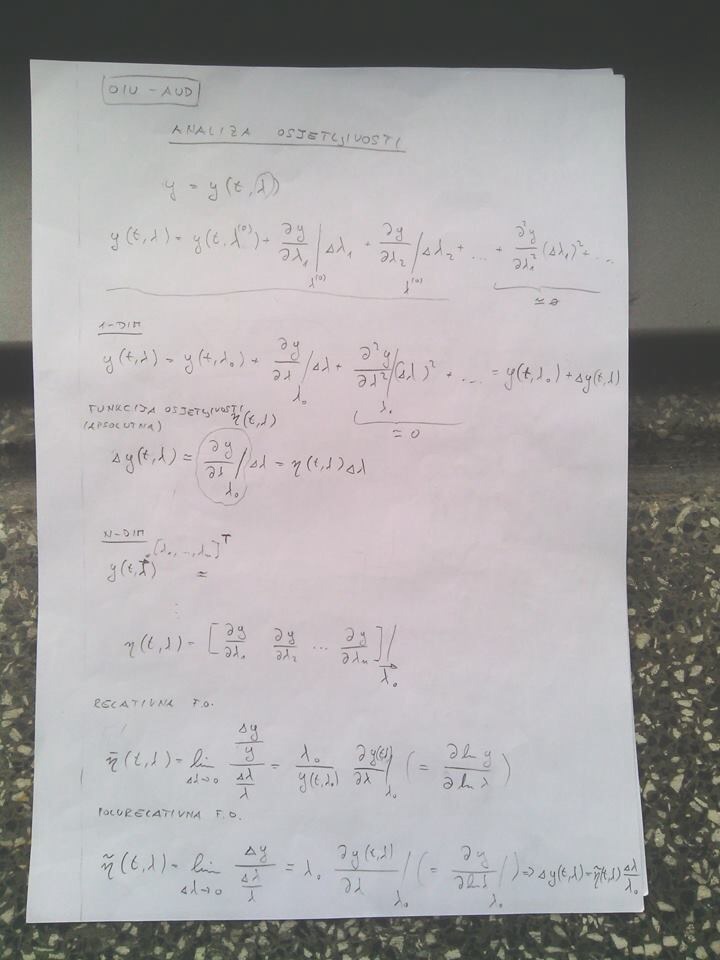 OIU - AUD
ANALIZA OSJETLJIVOSTI
y = y(t, λ)
y(t,λ) = y(t,λ^(0)) + ∂y/∂λ₁ |_λ^(0) Δλ₁ + ∂y/∂λ₂ |_λ^(0) Δλ₂ + ... + ∂²y/∂λ₁² (Δλ₁)² + ...
≈ 0
1-DIM
y(t,λ) = y(t,λ₀) + ∂y/∂λ |_λ₀ Δλ + ∂²y/∂λ² |_λ₀ (Δλ)² + ... = y(t,λ₀) + Δy(t,λ)
≈ 0
FUNKCIJA OSJETLJIVOSTI η(t,λ)
(APSOLUTNA)
Δy(t,λ) ≈ ∂y/∂λ |_λ₀ Δλ = η(t,λ) Δλ
N-DIM
[λ₀, ..., λₙ]ᵀ
y(t,λ) ≈
⋮
η(t,λ) = [∂y/∂λ₁ ∂y/∂λ₂ ... ∂y/∂λₙ] |_λ₀
RELATIVNA F.O.
η̄(t,λ) = lim_Δλ→0 (Δy/y)/(Δλ/λ) = λ₀/y(t,λ₀) ∂y(t,λ)/∂λ |_λ₀ (= ∂ln y/∂ln λ)
POLURELATIVNA F.O.
η̃(t,λ) = lim_Δλ→0 Δy/(Δλ/λ) = λ₀ ∂y(t,λ)/∂λ |_λ₀ (= ∂y/∂lnλ |_λ₀) ⇒ Δy(t,λ) = η̃(t,λ) Δλ/λ₀